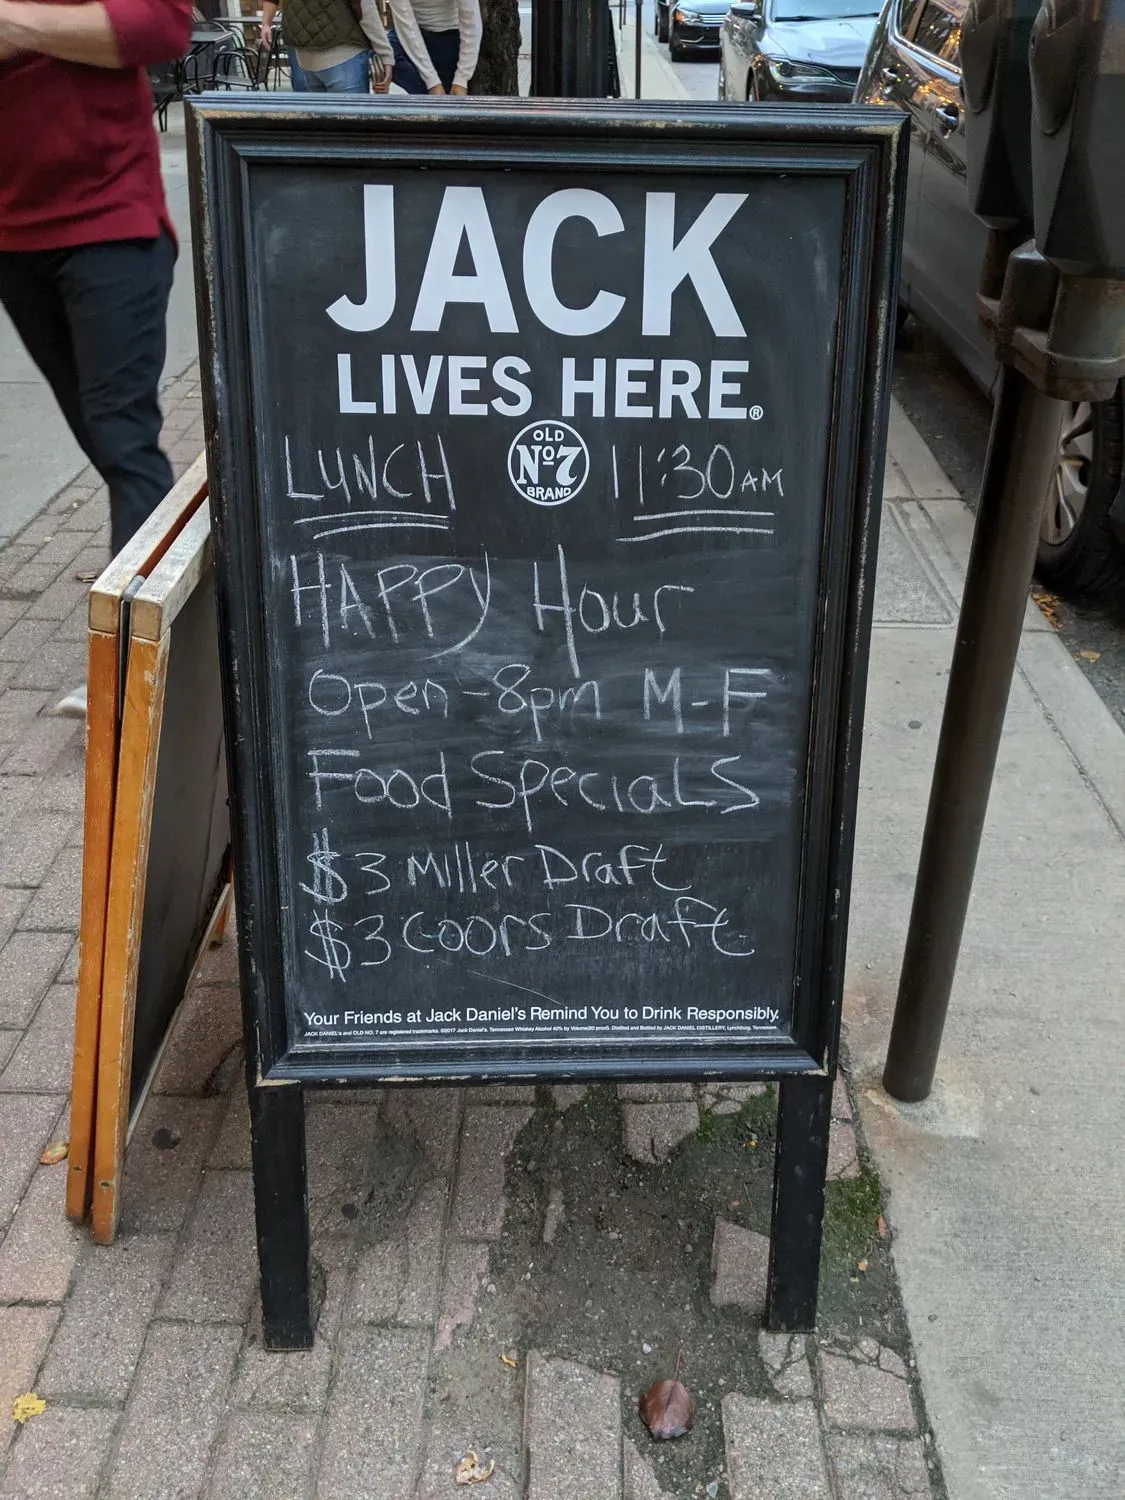 JACK
LIVES HERE®
OLD
Nº7
BRAND
LUNCH 11:30 AM
HAPPY Hour
Open - 8pm M-F
Food SpeciaLS
$3 Miller Draft
$3 Coors Draft
Your Friends at Jack Daniel's Remind You to Drink Responsibly.
JACK DANIEL'S and OLD NO. 7 are registered trademarks. ©2017 Jack Daniel's. Tennessee Whiskey Alcohol 40% by Volume(80 proof). Distilled and Bottled by JACK DANIEL DISTILLERY, Lynchburg, Tennessee.